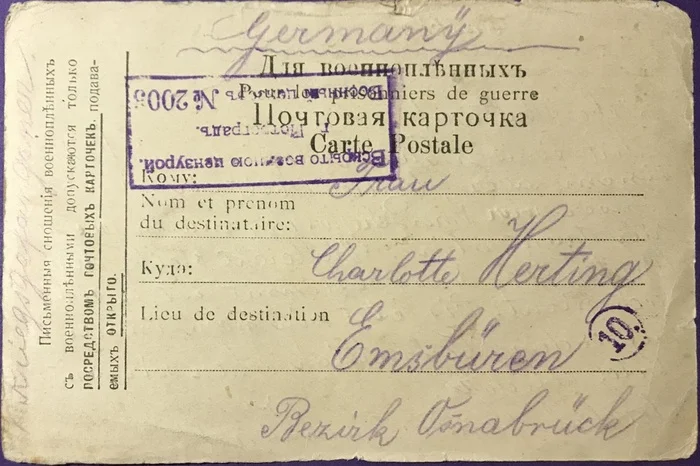 Germany
Для военноплѣнныхъ
Pour les prisonniers de guerre
Почтовая карточка
Carte Postale
Вскрыто военною цензурой.
г. Петроградъ.
Военный цензоръ № 2005
Кому: Frau
Nom et prenom
du destinataire:
Куда: Charlotte Herting
Lieu de destination
Emsbüren
10.
Bezirk Osnabrück
Письменныя сношенія военноплѣнныхъ
съ военноплѣнными допускаются только
посредствомъ почтовыхъ карточекъ, подава-
емыхъ открыто.